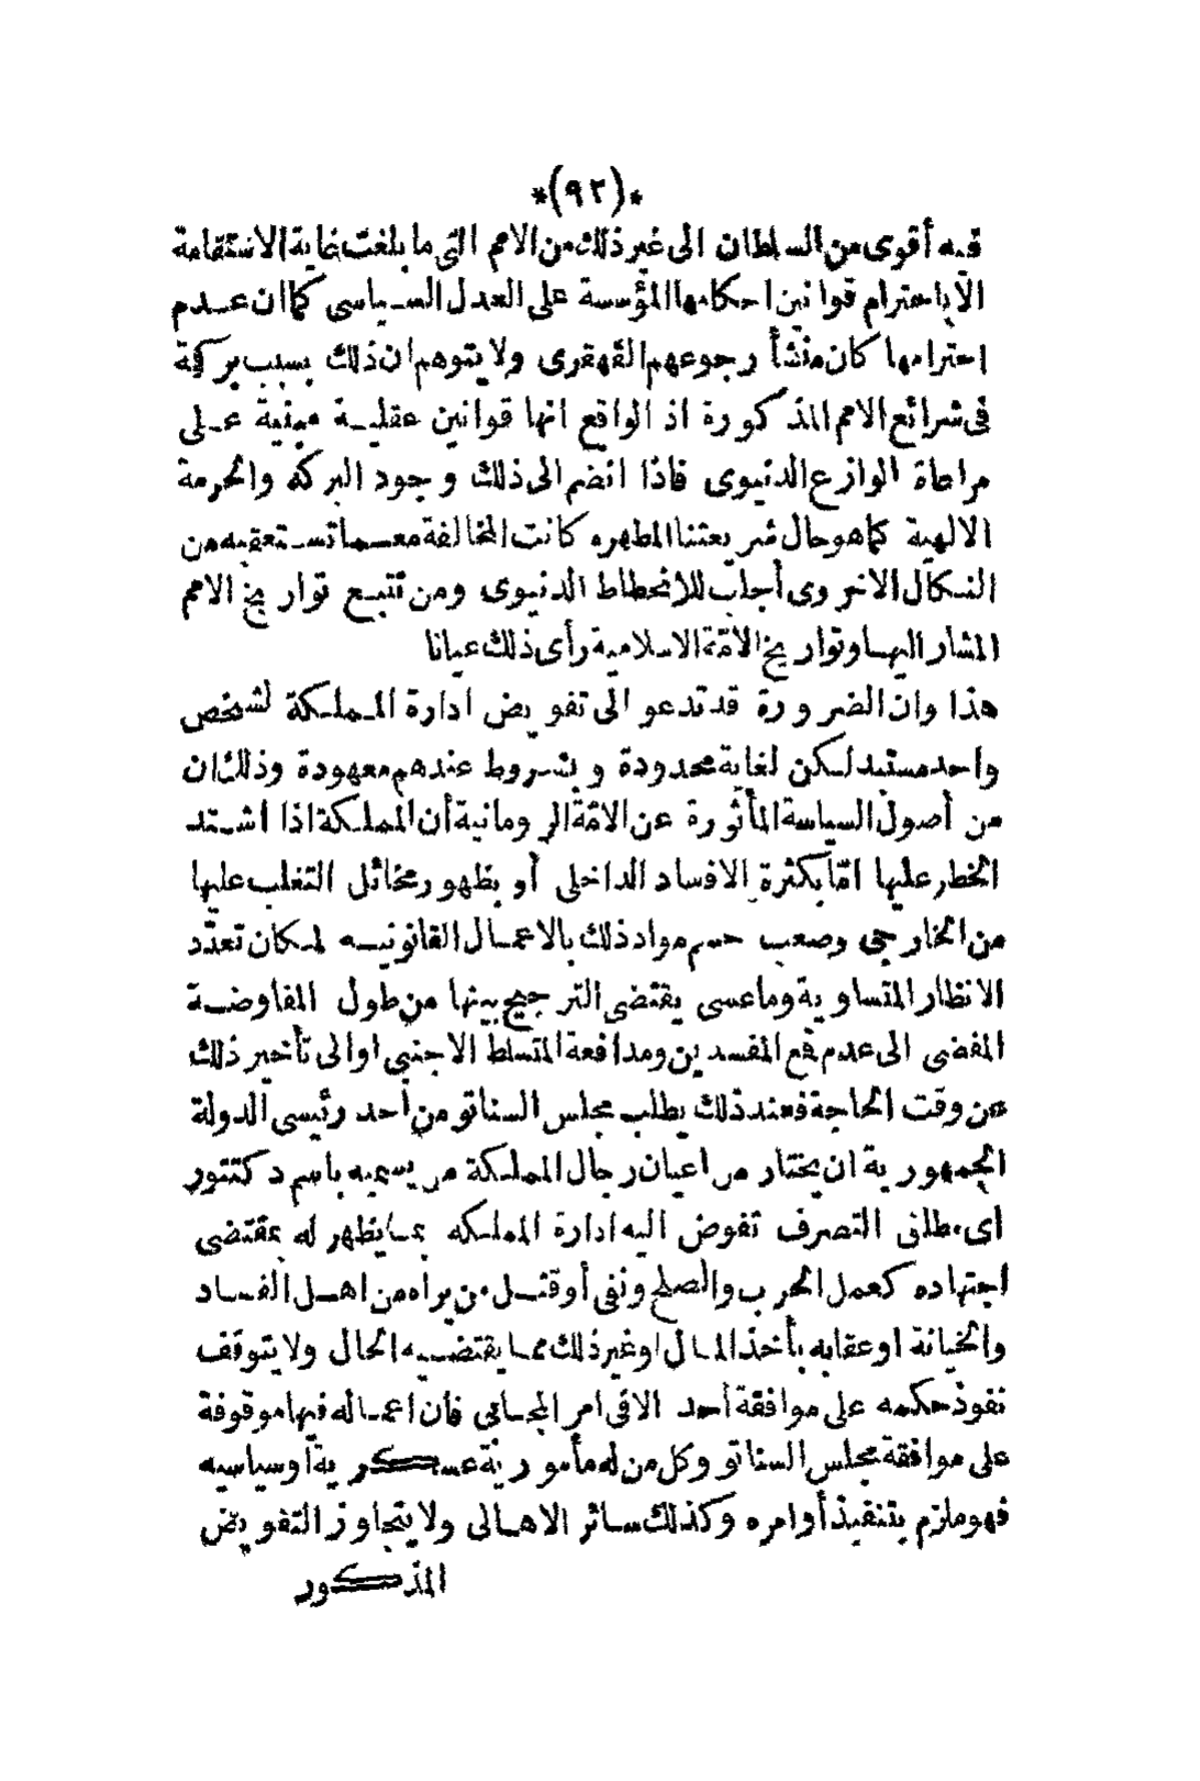 *(٩٢)*
فيه أقوى من السلطان الى غير ذلك من الامم التى ما بلغت غاية الاستقامة
الّا باحترام قوانين احكامها المؤسسة على العدل السياسى كما ان عدم
احترامها كان منشأ رجوعهم القهقرى ولا يتوهم ان ذلك بسبب بركة
فى شرائع الامم المذكورة اذ الواقع انها قوانين عقلية مبنية على
مراعاة الوازع الدنيوى فاذا انضم الى ذلك وجود البركه والحرمة
الالهية كما هو حال شريعتنا المطهره كانت المخالفة مع ما تستعقبه من
النكال الاخروى أجلب للانحطاط الدنيوى ومن تتبع تواريخ الامم
المشار اليها وتواريخ الأمّة الاسلامية رأى ذلك عيانا
هذا وان الضرورة قد تدعو الى تفويض ادارة المملكة لشخص
واحد مستبد لكن لغاية محدودة وبشروط عندهم معهودة وذلك ان
من أصول السياسة المأثورة عن الامّة الرومانية أن المملكة اذا اشتد
الخطر عليها امّا بكثرة الافساد الداخلى أو بظهور مخائل التغلب عليها
من الخارجى وصعب حسم مواد ذلك بالاعمال القانونيه لمكان تعدّد
الانظار المتساوية وما عسى يقتضى الترجيح بينها من طول المفاوضة
المفضى الى عدم قمع المفسدين ومدافعة المتسلط الاجنبى او الى تأخير ذلك
عن وقت الحاجة فعند ذلك يطلب مجلس السناتو من أحد رئيسى الدولة
الجمهورية ان يختار من اعيان رجال المملكة من يسميه باسم دكتتور
اى مطلق التصرف تفوض اليه ادارة المملكه بما يظهر له بمقتضى
اجتهاده كعمل الحرب والصلح ونفى أو قتل من يراه من اهل الفساد
والخيانة او عقابه بأخذ المال او غير ذلك مما يقتضيه الحال ولا يتوقف
نفوذ حكمه على موافقة أحد الا فى امر المجابى فان اعماله فيها موقوفة
على موافقة مجلس السناتو وكل من له مأمورية عسكرية أو سياسيه
فهو ملزم بتنفيذ أوامره وكذلك سائر الاهالى ولا يتجاوز التفويض
المذكور